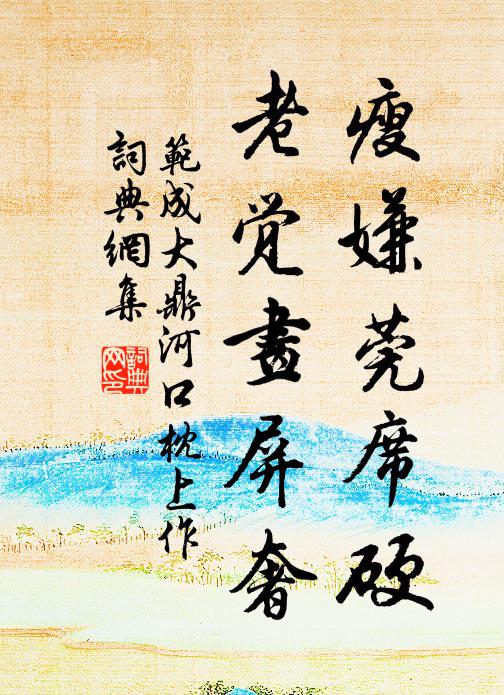 瘦嫌莞席硬
老觉畫屏奢
範成大鼎河口枕上作
詞典網集
詞典网印